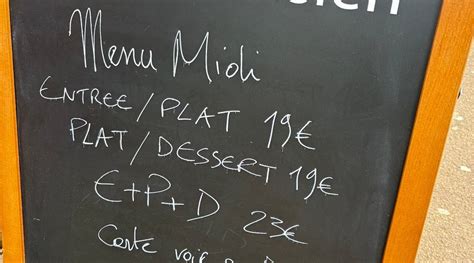 Menu Midi
ENTREE/PLAT 19€
PLAT/DESSERT 19€
E+P+D 23€
Carte voir